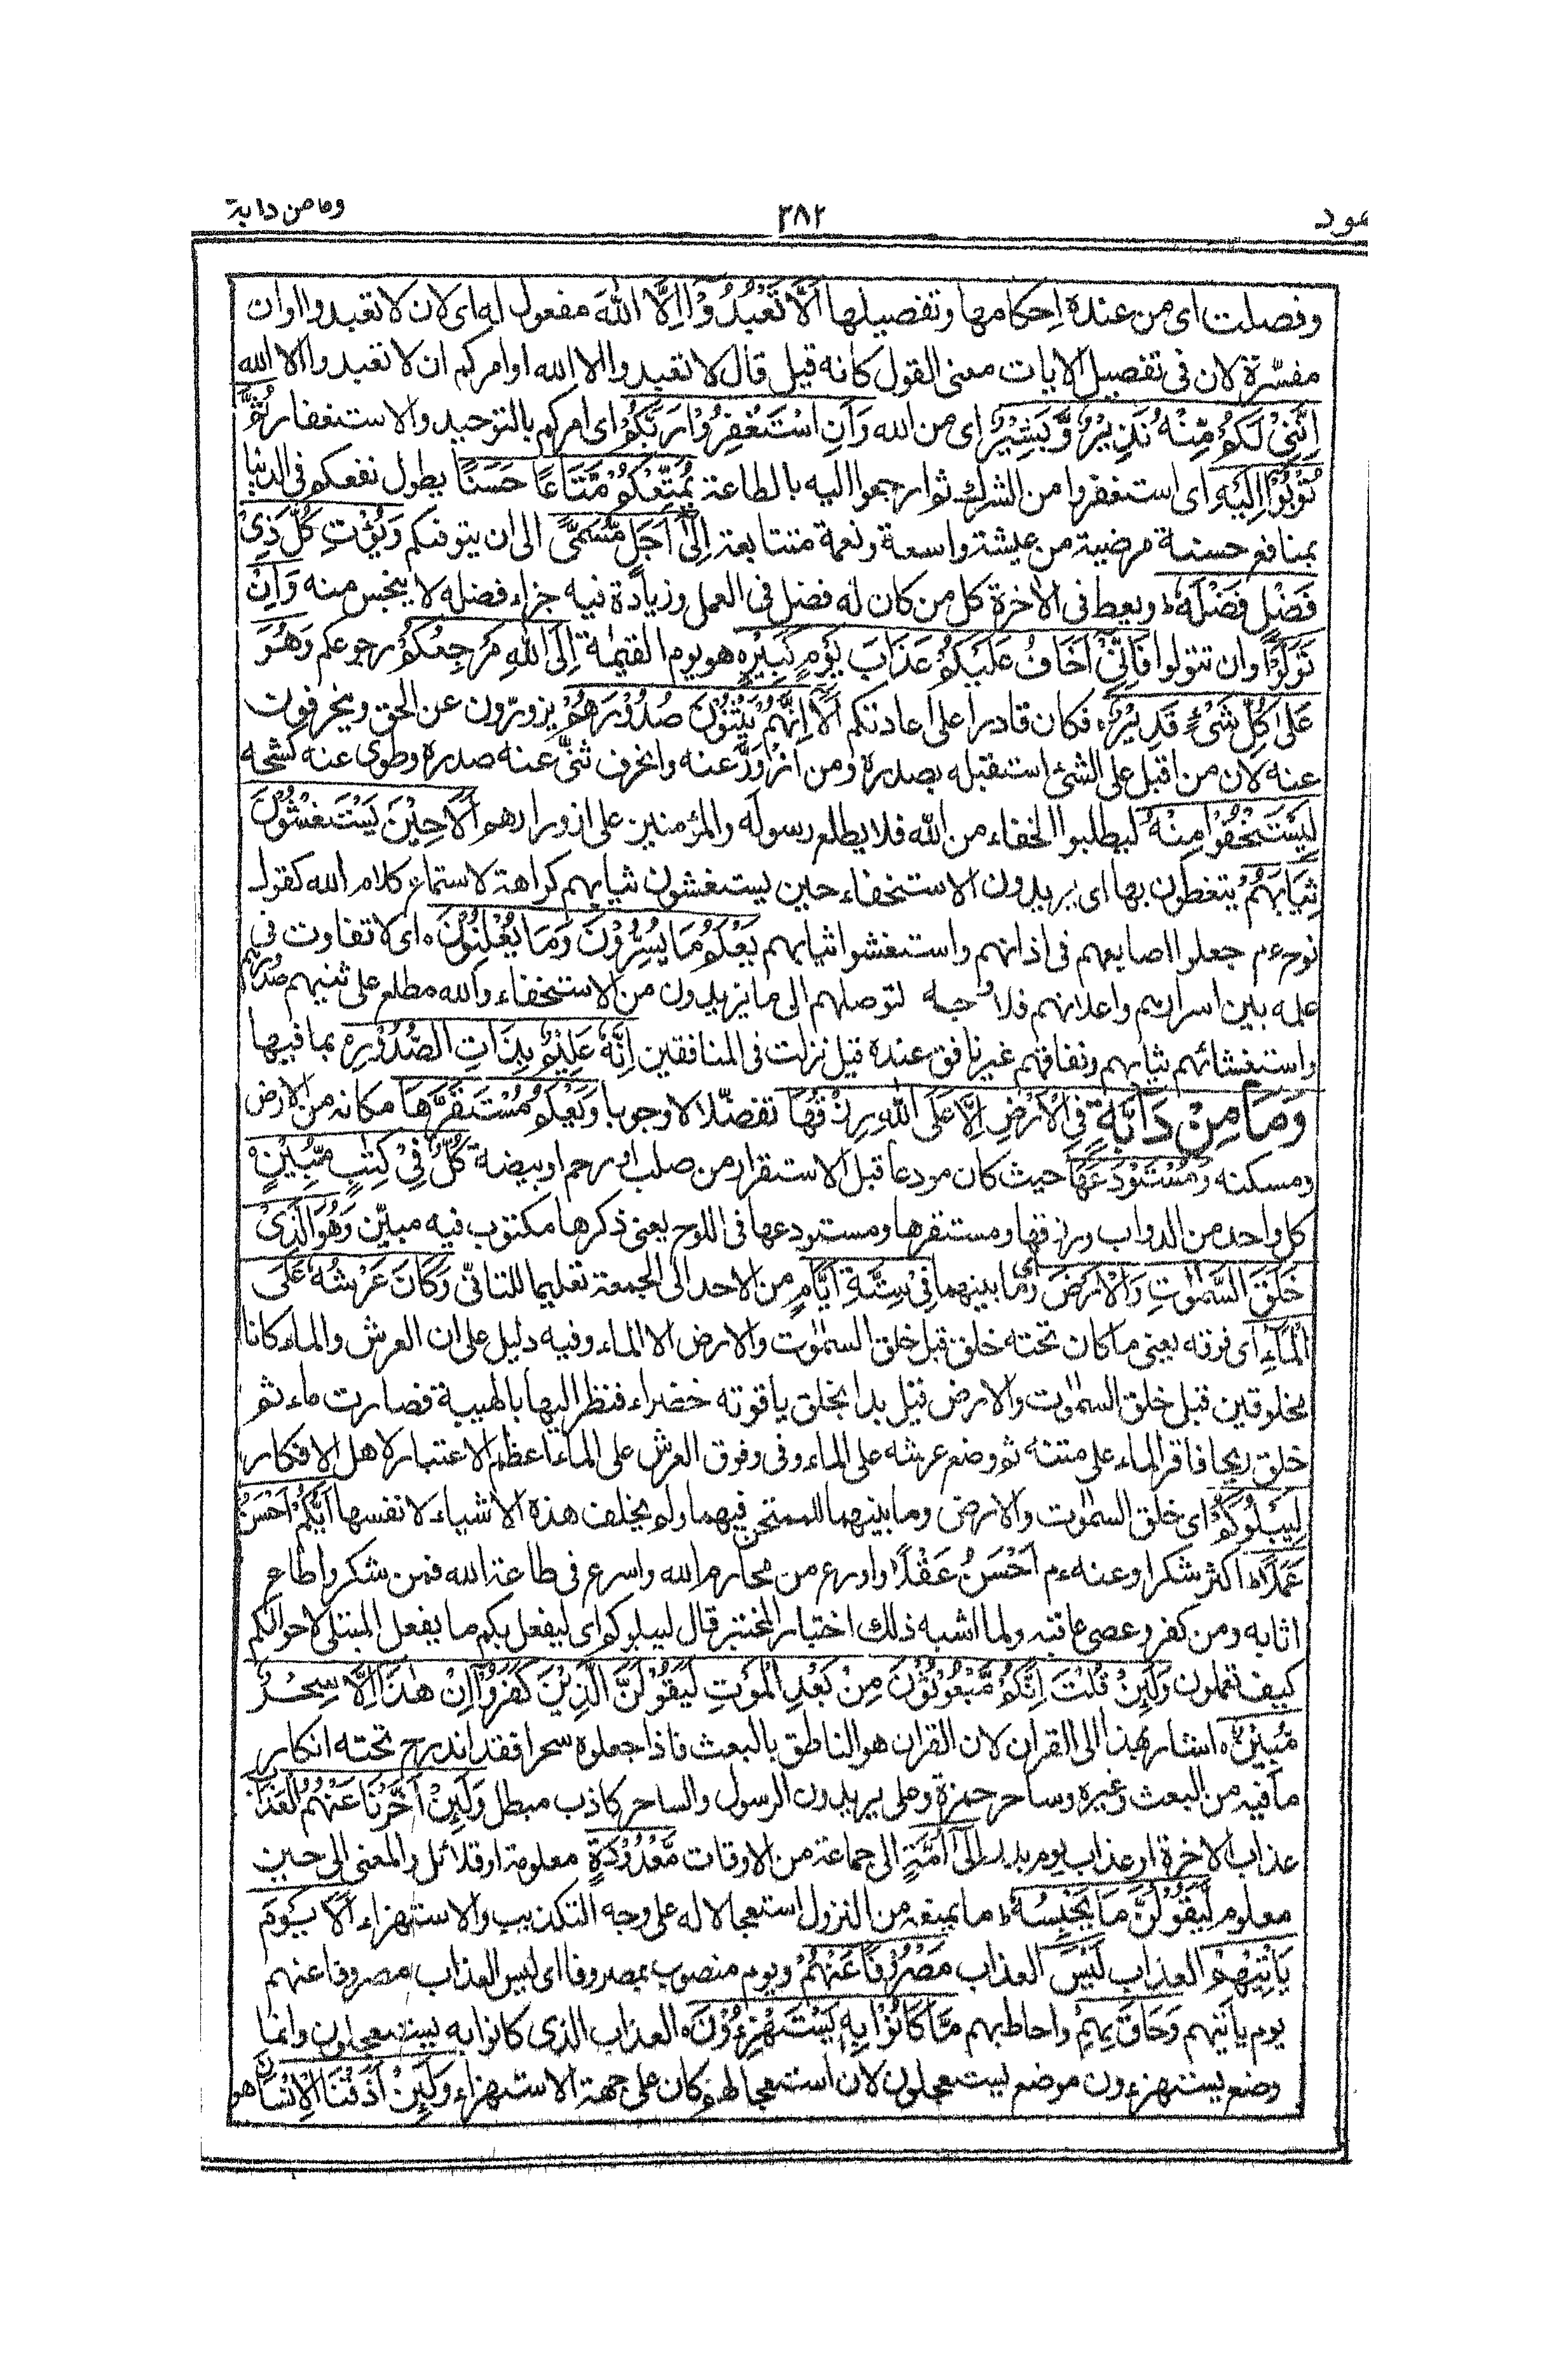 هود ٣٨٢ وما من دابة
وفصلت اى من عنده احكامها وتفصيلها اَلَّا تَعْبُدُوْا اِلَّا اللّٰهَ مفعول له اى لان لا تعبدوا او ان
مفسّرة لان فى تفصيل الايات معنى القول كانه قيل قال لا تعبدوا الا الله او امركم ان لا تعبدوا الا الله
اِنَّنِىْ لَكُمْ مِّنْهُ نَذِيْرٌ وَّبَشِيْرٌ اى من الله وَاَنِ اسْتَغْفِرُوْا رَبَّكُمْ اى امركم بالتوحيد والاستغفار ثُمَّ
تُوْبُوْا اِلَيْهِ اى استغفروا من الشرك ثم ارجعوا اليه بالطاعة يُمَتِّعْكُمْ مَّتَاعًا حَسَنًا يطول نفعكم فى الدنيا
بمنافع حسنة مرضية من عيشة واسعة ونعمة متتابعة اِلٰٓى اَجَلٍ مُّسَمًّى الى ان يتوفكم وَيُؤْتِ كُلَّ ذِىْ
فَضْلٍ فَضْلَهٗ ط ويعط فى الاخرة كل من كان له فضل فى العمل وزيادة فيه جزاء فضله لا يبخس منه وَاِنْ
تَوَلَّوْا وان تتولوا فَاِنِّىْٓ اَخَافُ عَلَيْكُمْ عَذَابَ يَوْمٍ كَبِيْرٍ هو يوم القيٰمة اِلَى اللّٰهِ مَرْجِعُكُمْ رجوعكم وَهُوَ
عَلٰى كُلِّ شَىْءٍ قَدِيْرٌ فكان قادرا على اعادتكم اَلَآ اِنَّهُمْ يَثْنُوْنَ صُدُوْرَهُمْ يزورّون عن الحق وينحرفون
عنه لان من اقبل على الشئ استقبله بصدره ومن ازوَرَّ عنه وانحرف ثنّى عنه صدره وطوى عنه كشحه
لِيَسْتَخْفُوْا مِنْهُ ليطلبوا الخفاء من الله فلا يطلع رسوله والمؤمنين على ازورارهم اَلَا حِيْنَ يَسْتَغْشُوْنَ
ثِيَابَهُمْ يتغطون بها اى يريدون الاستخفاء حين يستغشون ثيابهم كراهة لاستماع كلام الله كقول
نوح ءم جعلوا اصابعهم فى اذانهم واستغشوا ثيابهم يَعْلَمُ مَا يُسِرُّوْنَ وَمَا يُعْلِنُوْنَ اى لا تفاوت فى
علمه بين اسرارهم واعلانهم فلا وجه لتوصلهم الى ما يريدون من الاستخفاء والله مطلع على ثنيهم صدرهم
واستغشائهم ثيابهم ونفاقهم غير نافق عنده قيل نزلت فى المنافقين اِنَّهٗ عَلِيْمٌۢ بِذَاتِ الصُّدُوْرِ بما فيها
وَمَا مِنْ دَآبَّةٍ فِى الْاَرْضِ اِلَّا عَلَى اللّٰهِ رِزْقُهَا تفضّلا لا وجوبا وَيَعْلَمُ مُسْتَقَرَّهَا مكانه من الارض
ومسكنه وَمُسْتَوْدَعَهَا حيث كان مودعا قبل الاستقرار من صلب او رحم او بيضة كُلٌّ فِىْ كِتٰبٍ مُّبِيْنٍ
كل واحد من الدواب ورزقها ومستقرها ومستودعها فى اللوح يعنى ذكرها مكتوب فيه مبيّن وَهُوَ الَّذِىْ
خَلَقَ السَّمٰوٰتِ وَالْاَرْضَ وما بينهما فِىْ سِتَّةِ اَيَّامٍ من الاحد الى الجمعة تعليما للتانّى وَكَانَ عَرْشُهٗ عَلَى
الْمَآءِ اى فوقه يعنى ما كان تحته خلق قبل خلق السمٰوٰت والارض الا الماء وفيه دليل على ان العرش والماء كانا
مخلوقين قبل خلق السمٰوٰت والارض قيل بدا بخلق ياقوته خضراء فنظر اليها بالهيبة فصارت ماء ثم
خلق ريحا فاقر الماء على متنه ثم وضع عرشه على الماء وفى وقوف العرش على الماء اعظم الاعتبار لاهل الافكار
لِيَبْلُوَكُمْ اى خلق السمٰوٰت والارض وما بينهما للممتحن فيهما ولم يخلف هذه الاشياء لانفسها اَيُّكُمْ اَحْسَنُ
عَمَلًا ط اكثر شكرا وعنه ءم احْسَنُ عَقْلًا واورع من محارم الله واسرع فى طاعة الله فمن شكر واطاع
اثابه ومن كفر وعصى عاقبه ولما اشبه ذلك اختبار المختبر قال ليبلوكم اى ليفعل بكم ما يفعل المبتلى لاحوالكم
كيف تعملون وَلَئِنْ قُلْتَ اِنَّكُمْ مَّبْعُوْثُوْنَ مِنْۢ بَعْدِ الْمَوْتِ لَيَقُوْلَنَّ الَّذِيْنَ كَفَرُوْٓا اِنْ هٰذَآ اِلَّا سِحْرٌ
مُّبِيْنٌ اشار بهذا الى القران لان القران هو الناطق بالبعث فاذا جعلوه سحرا فقد اندرج تحته انكار
ما فيه من البعث وغيره وساحر حمزة وعلى يريدون الرسول والساحر كاذب مبطل وَلَئِنْ اَخَّرْنَا عَنْهُمُ الْعَذَابَ
عذاب الاخرة او عذاب يوم بدر اِلٰٓى اُمَّةٍ الى جماعة من الاوقات مَّعْدُوْدَةٍ معلومة او قلائل والمعنى الى حين
معلوم لَّيَقُوْلُنَّ مَا يَحْبِسُهٗ ط ما يمنعه من النزول استعجالا له على وجه التكذيب والاستهزاء اَلَا يَوْمَ
يَاْتِيْهِمْ العذاب لَيْسَ العذاب مَصْرُوْفًا عَنْهُمْ ويوم منصوب بمصروفا اى ليس العذاب مصروفا عنهم
يوم ياتيهم وَحَاقَ بِهِمْ واحاط بهم مَّا كَانُوْا بِهٖ يَسْتَهْزِءُوْنَ العذاب الذى كانوا به يستعجلون وانما
وضع يستهزءون موضع يستعجلون لان استعجالهم كان على جهة الاستهزاء وَلَئِنْ اَذَقْنَا الْاِنْسَانَ هو